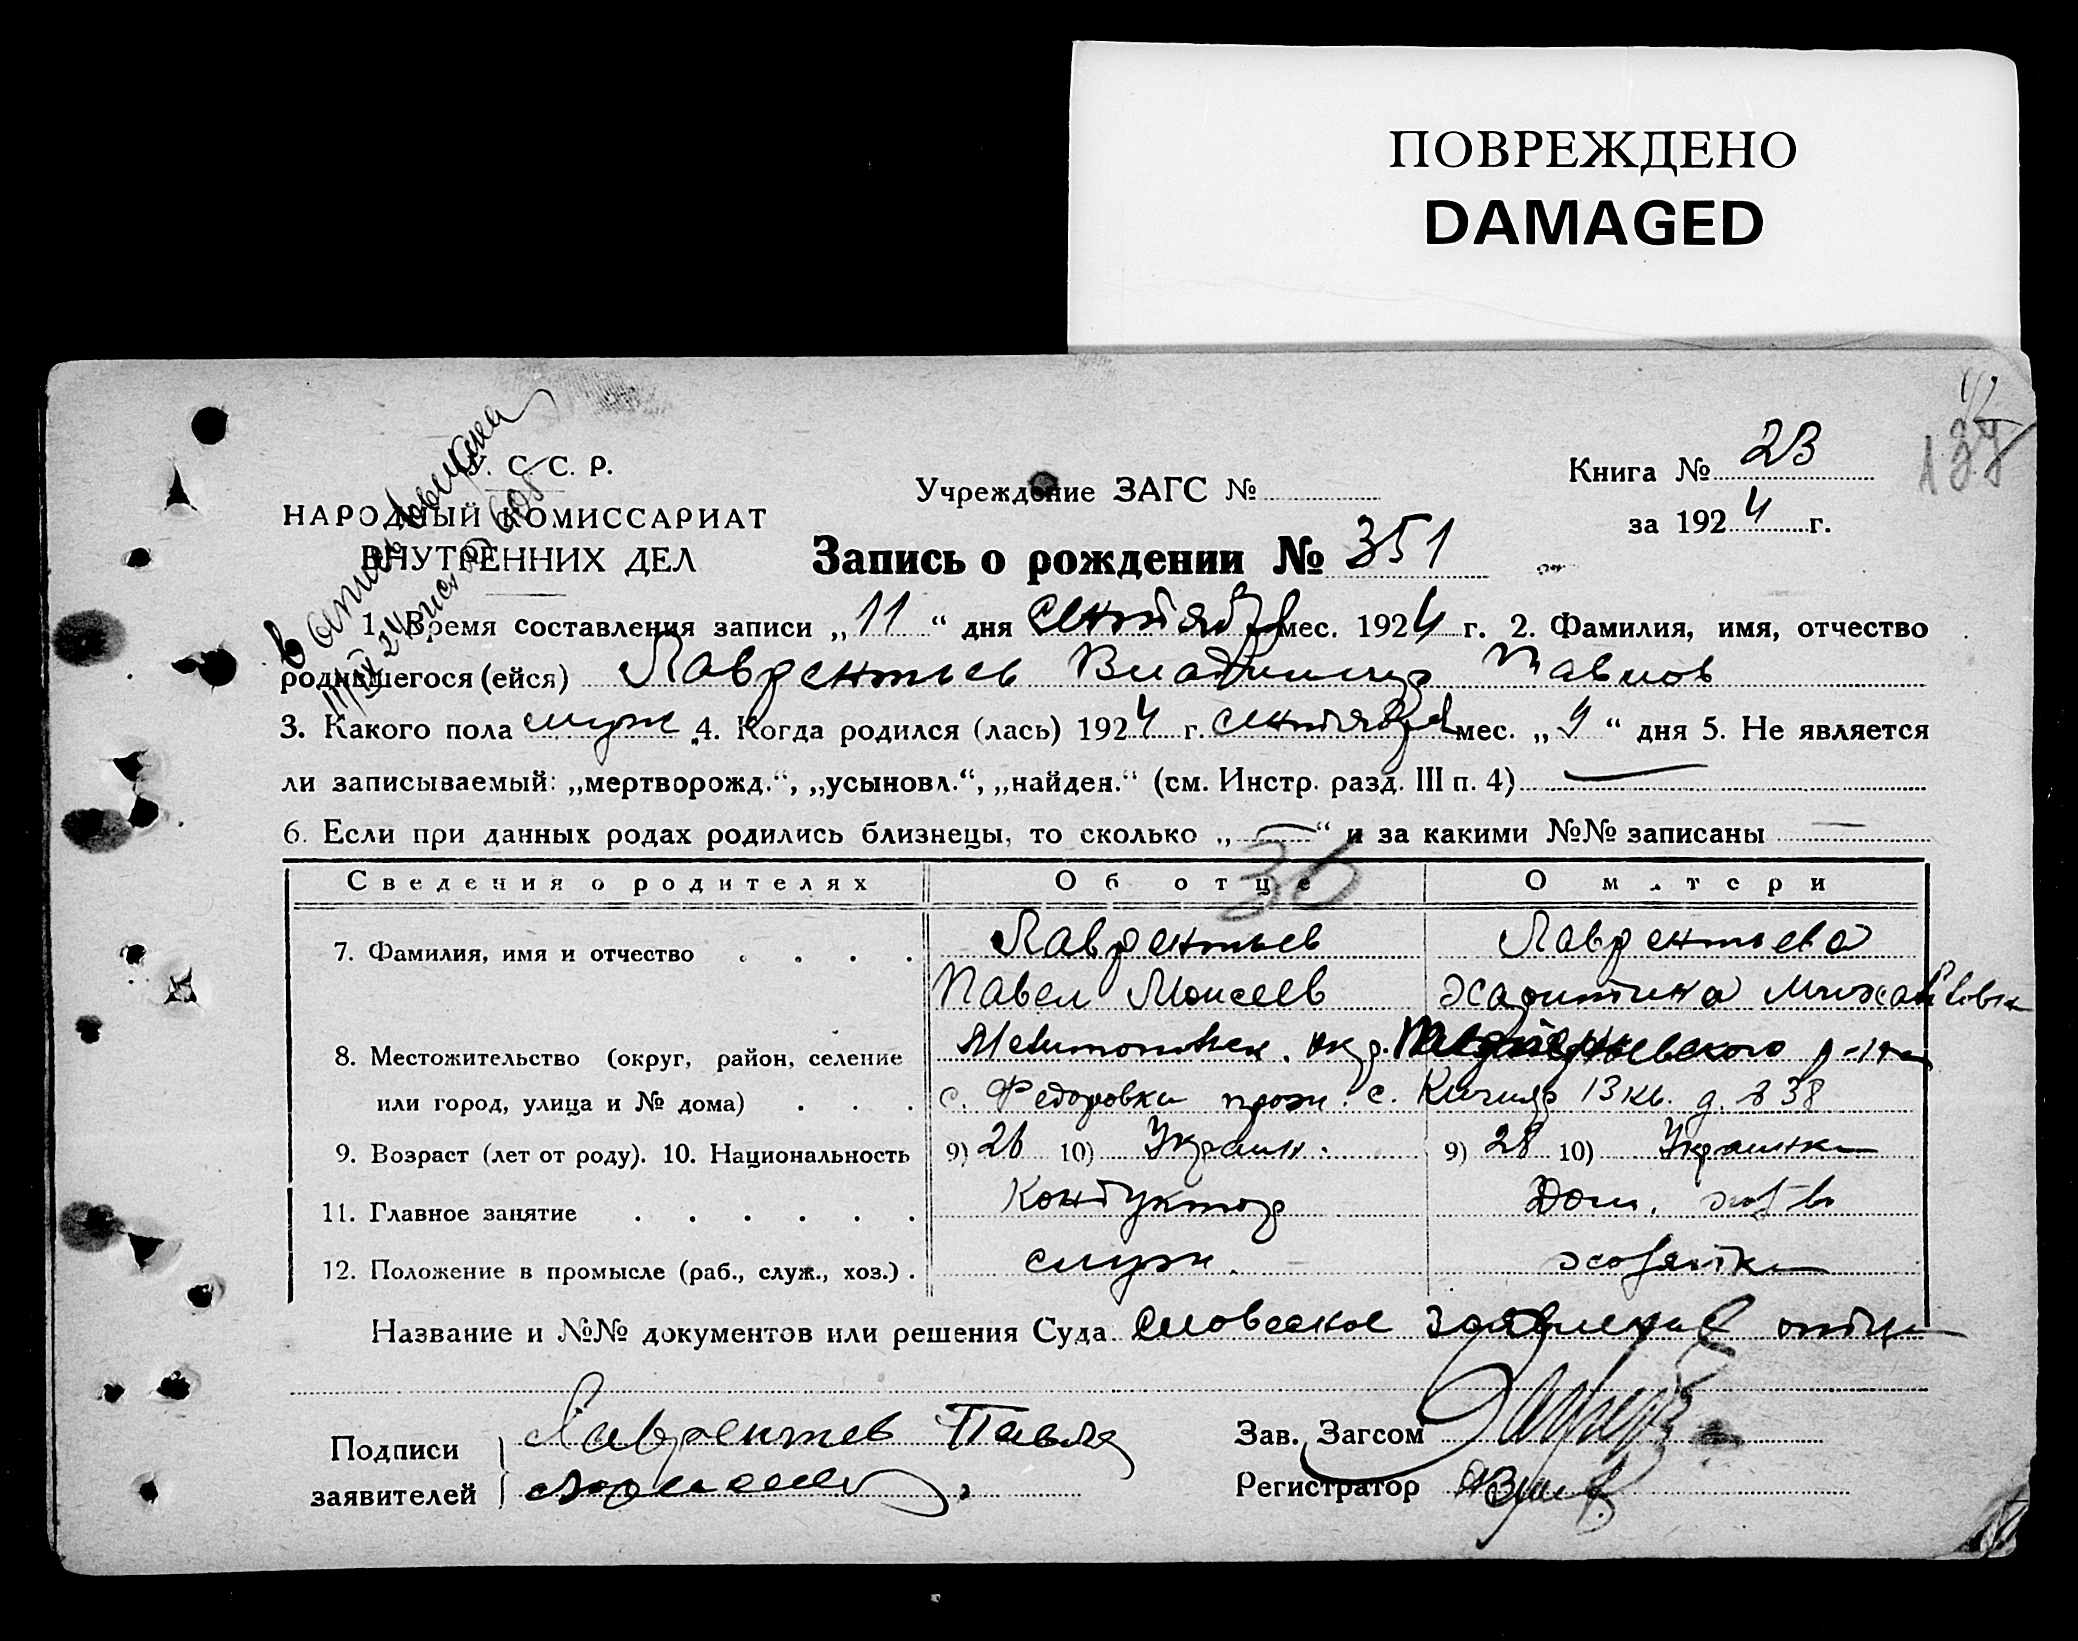 ПОВРЕЖДЕНО
DAMAGED
С. С. Р.
НАРОДНЫЙ КОМИССАРИАТ
ВНУТРЕННИХ ДЕЛ
Учреждение ЗАГС №
Книга № 23
за 1924 г.
Запись о рождении № 351
1. Время составления записи „11“ дня сентября мес. 1924 г. 2. Фамилия, имя, отчество
родившегося (ейся) Лаврентьев Владимир Павлов
3. Какого пола муж 4. Когда родился (лась) 1924 г. сентября мес. „9“ дня 5. Не является
ли записываемый: „мертворожд.“, „усыновл.“, „найден.“ (см. Инстр. разд. III п. 4) —
6. Если при данных родах родились близнецы, то сколько „—“ и за какими №№ записаны —
36
Сведения о родителях Об отце О матери
7. Фамилия, имя и отчество Лаврентьев Лаврентьева
Павел Моисеев Харитина Михайловна
8. Местожительство (округ, район, селение Мелитопольск. окр.
или город, улица и № дома) с. Федоровки прож. с. Кичкас 13 кв. д. 38
9. Возраст (лет от роду). 10. Национальность 9) 26 10) Украин. 9) 28 10) Украинка
11. Главное занятие Кондуктор Дом. хоз-во
12. Положение в промысле (раб., служ., хоз.) служ. хозяйка
Название и №№ документов или решения Суда Словесное заявление отца
Подписи Лаврентьев Павел
заявителей
Зав. Загсом
Регистратор